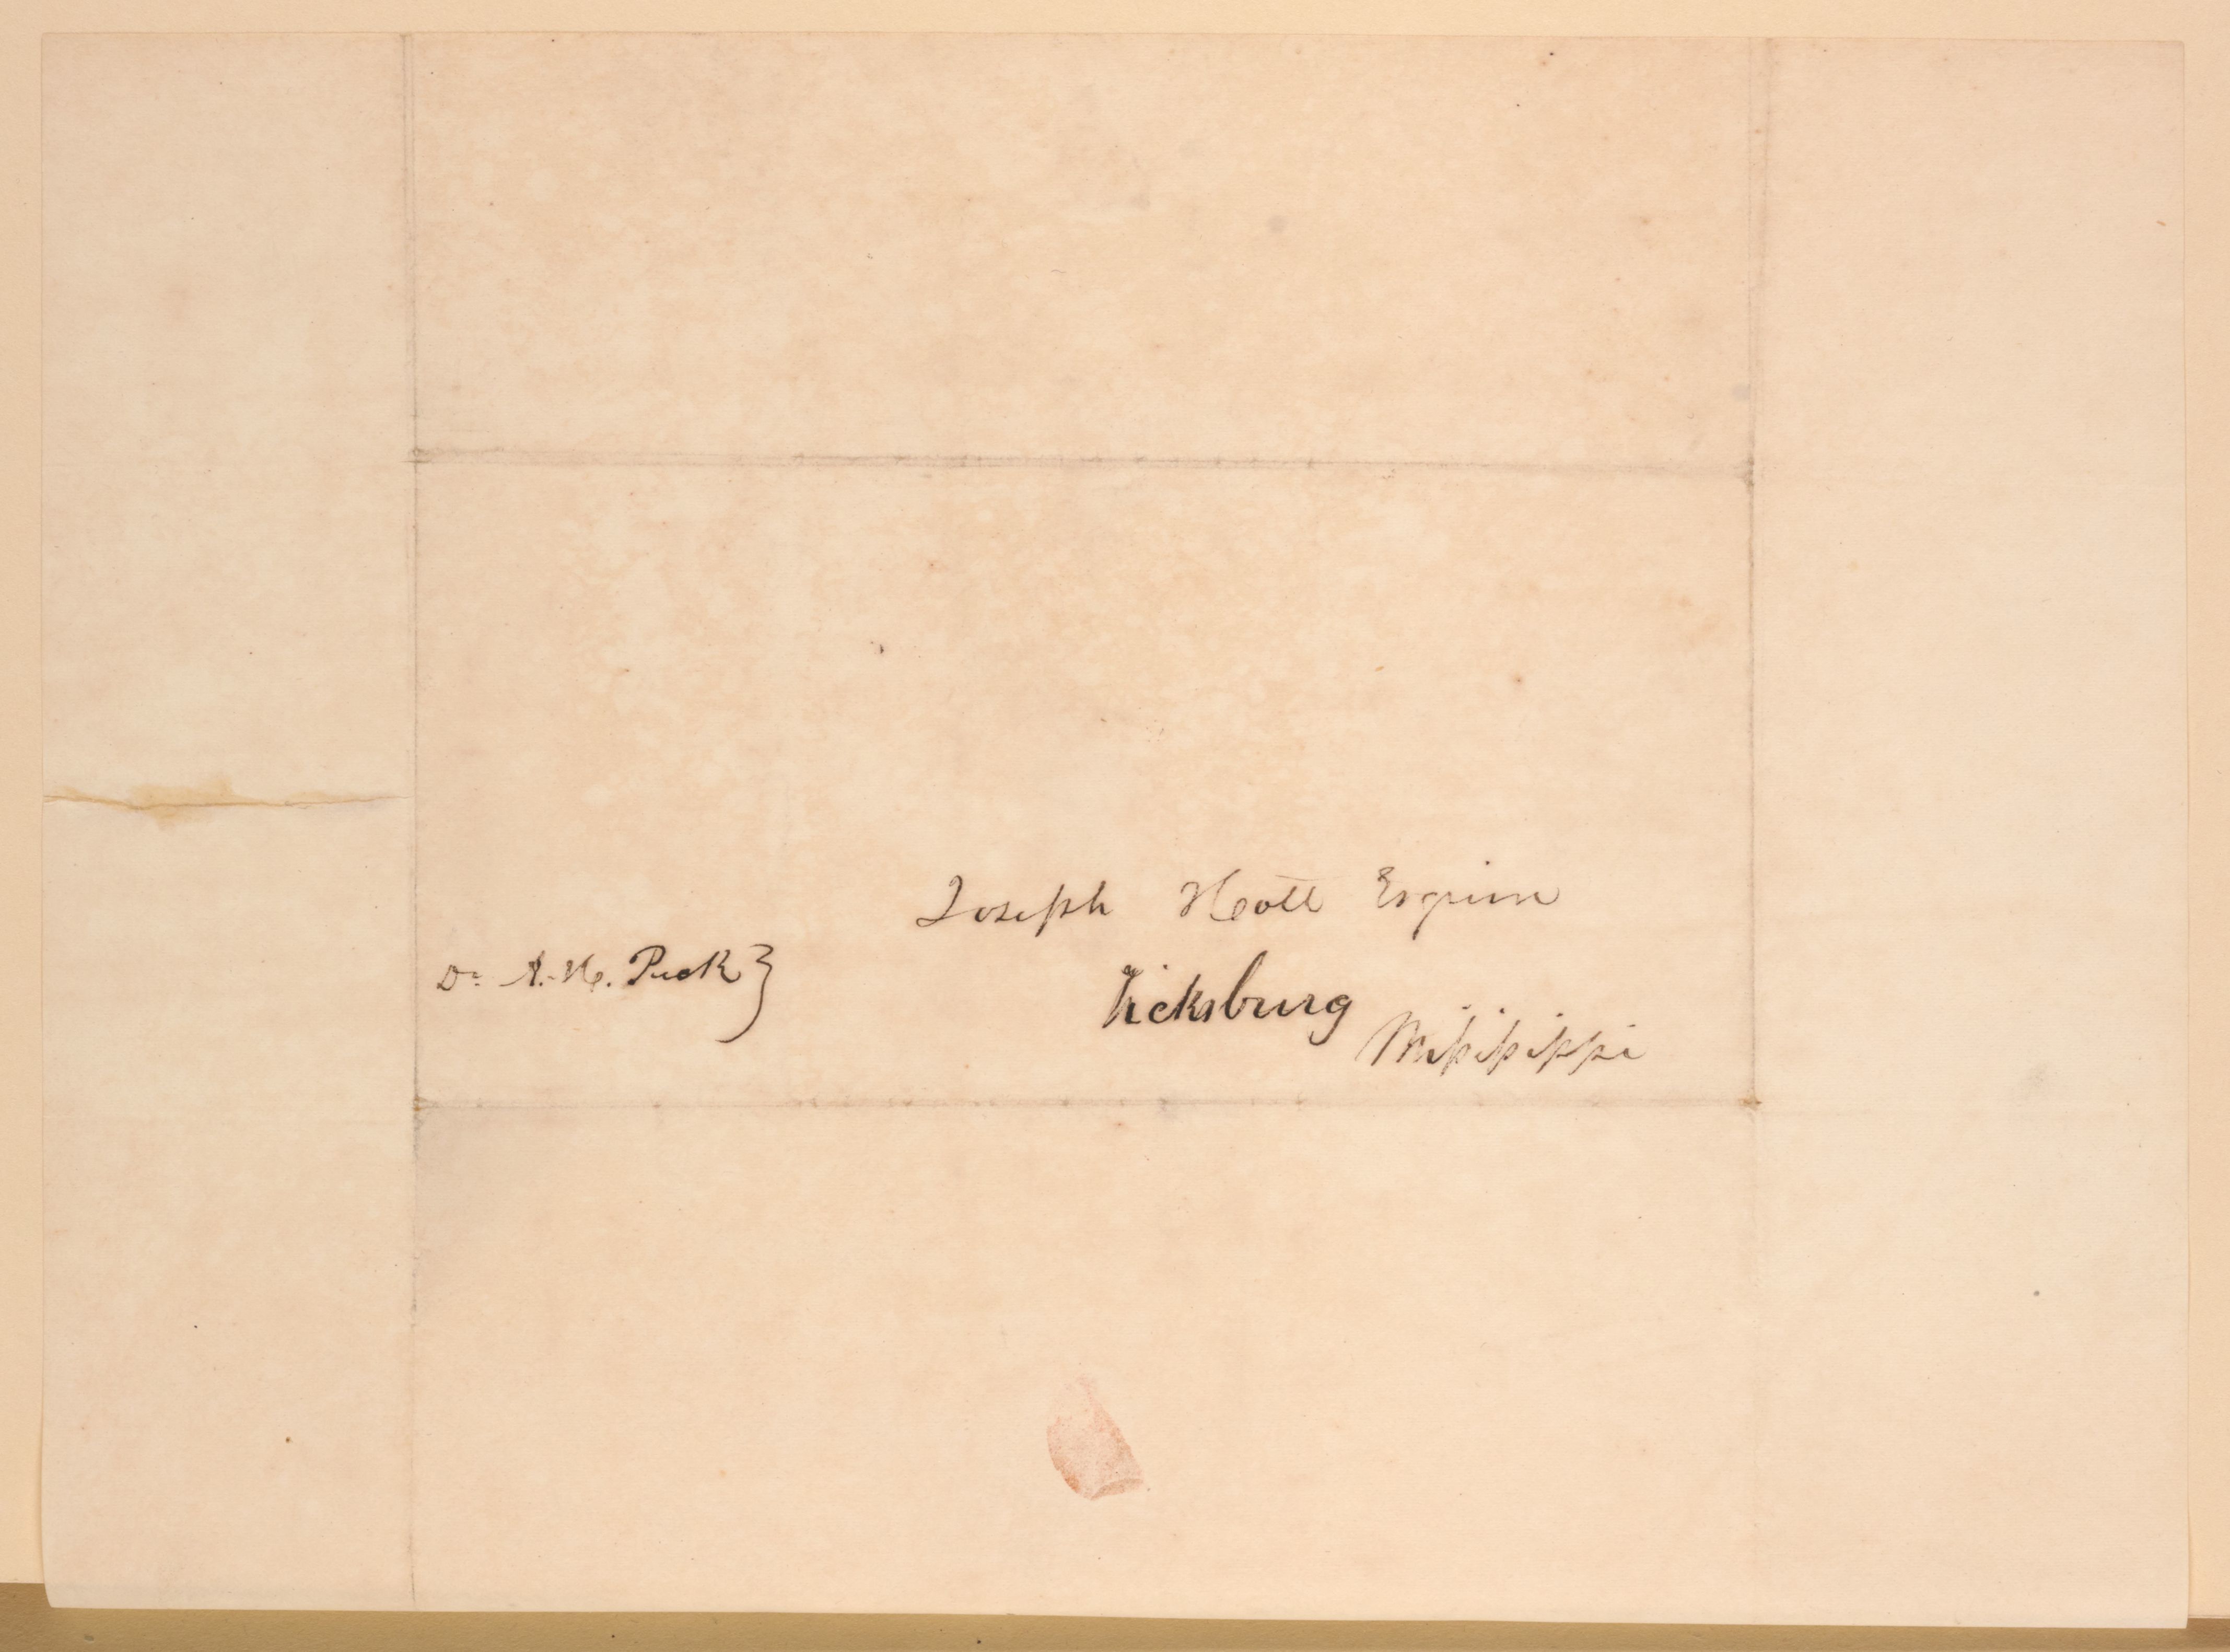 Joseph Holt Esquire
Dr. A. H. Peck }
Vicksburg
Missisippi